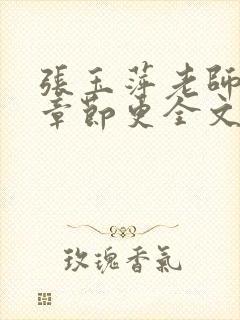 張玉萍老師
章節更全文
玫瑰香氣